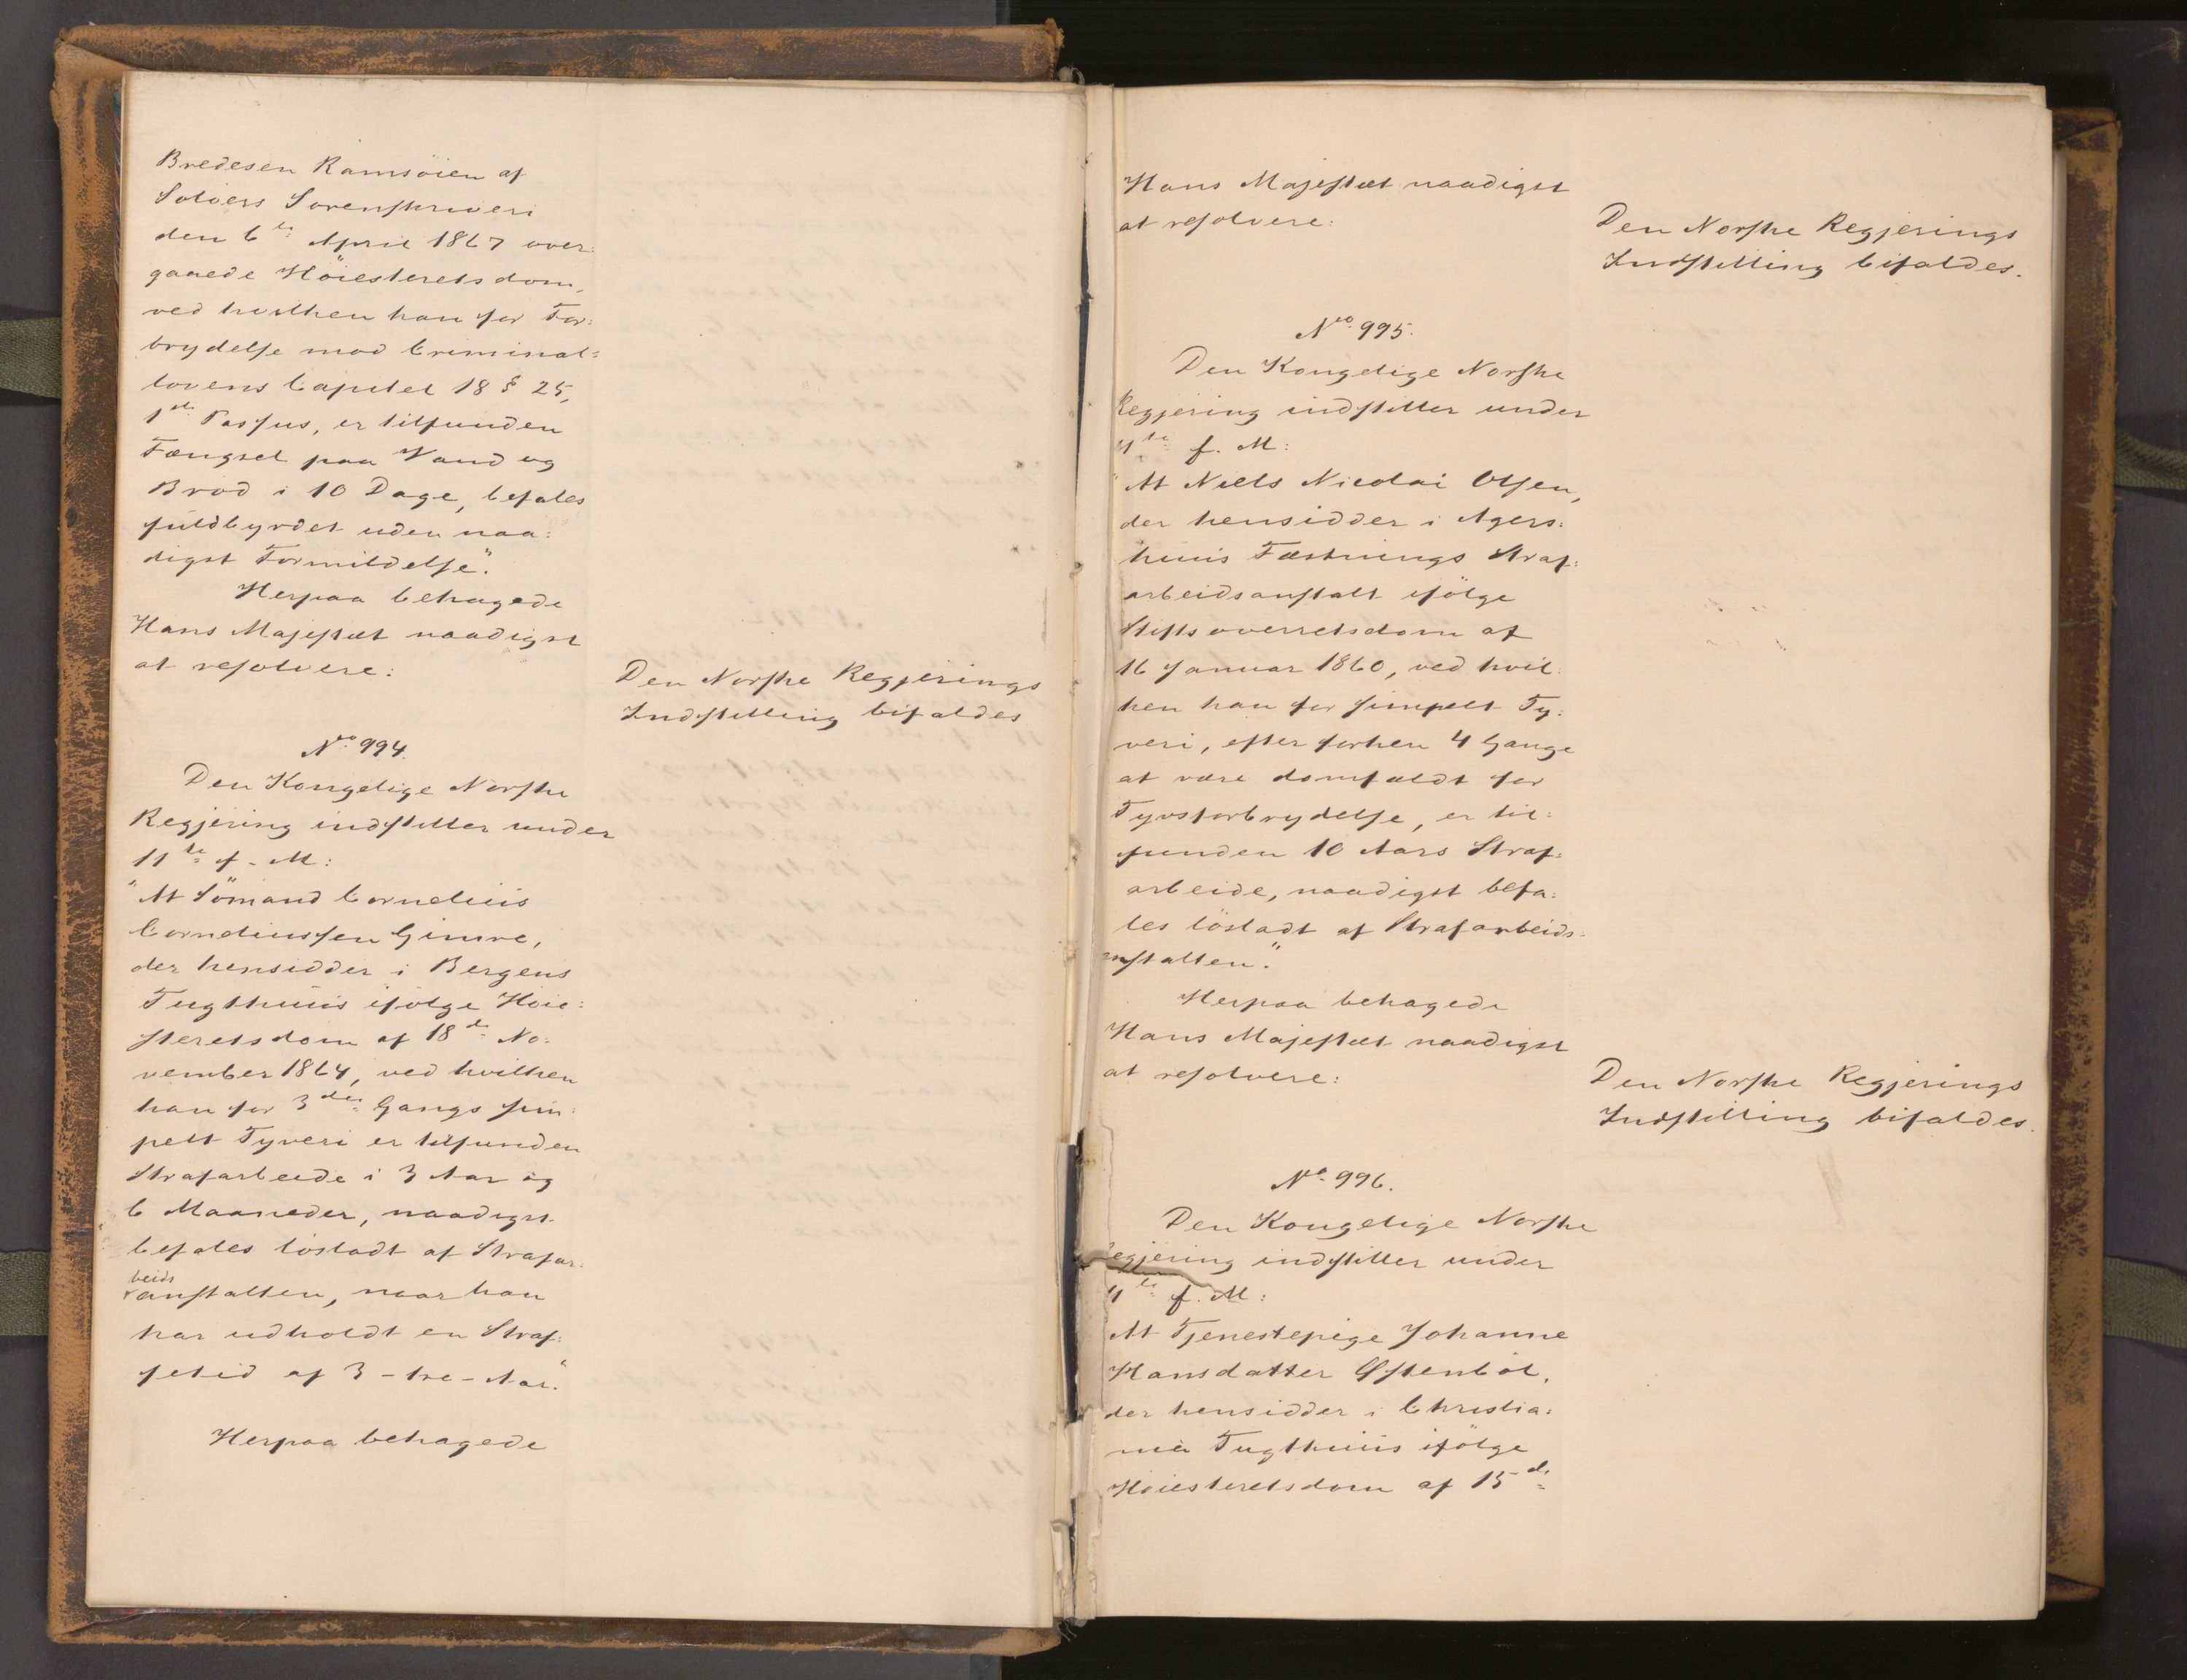 Bredesen Ramsöien af
Solöers Sorenskriveri
den 6te April 1867 over:
gaaede Höiesteretsdom,
ved hvilken han for For:
brydelse mod Criminal:
lovens Capitel 18 § 25,
1ste Passus, er tilfunden
Fængsel paa Vand og
Brød i 10 Dage, befales
fuldbyrdet uden naa:
digst Formildelse".
Herpaa behagede
Hans Majestæt naadigst
at resolvere:
Den Norske Regjerings
Indstilling bifaldes
No. 994.
Den Kongelige Norske
Regjering indstiller under
11te f. M:
"At Sömand Cornelius
Corneliussen Gimre,
der hensidder i Bergens
Tugthuus ifölge Höie:
steretsdom af 18de No:
vember 1864, ved hvilken
han for 3die Gangs sim:
pelt Tyveri er tilfunden
Strafarbeide i 3 Aar og
6 Maaneder, naadigst
befales lösladt af Strafar:
beids
anstalten, naar han
har udholdt en Straf:
fetid af 3 - tre - Aar."
Herpaa behagede
Hans Majestæt naadigst
at resolvere:
Den Norske Regjerings
Indstilling bifaldes.
No. 995.
Den Kongelige Norske
Regjering indstiller under
11te f. M:
"At Niels Nicolai Olsen,
der hensidder i Agers:
huus Fæstnings Straf:
arbeidsanstalt ifölge
Stiftsoverretsdom af
16 Januar 1860, ved hvil:
ken han for simpelt Ty:
veri, efter forhen 4 Gange
at være domfældt for
Tyvsforbrydelse, er til:
funden 10 Aars Straf:
arbeide, naadigst befa:
les lösladt af Strafarbeids:
anstalten".
Herpaa behagede
Hans Majestæt naadigst
at resolvere:
Den Norske Regjerings
Indstilling bifaldes.
No. 996.
Den Kongelige Norske
Regjering indstiller under
11te f. M:
At Tjenestepige Johanne
Hansdatter Østenböl,
der hensidder i Christia:
nia Tugthuus ifölge
Höiesteretsdom af 15de